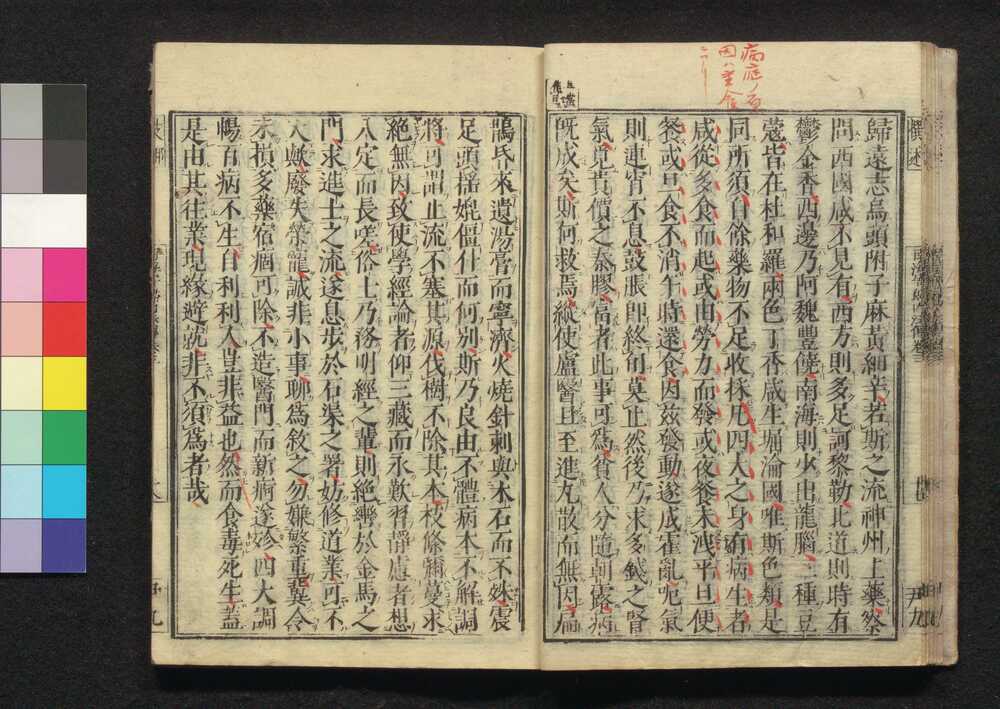 歸遠志烏頭附子麻黃細辛若斯之流神州上藥察
問西國咸不見有西方則多足訶黎勒北道則時有
鬱金香西邊乃阿魏豐饒南海則少出龍腦三種豆
蔻皆在杜和羅兩色丁香咸生堀淪國唯斯色類是
同所須自餘藥物不足收採凡四大之身有病生者
咸從多食而起或由勞力而發或夜餐未洩平旦便
餐或旦食不消午時還食因茲發動遂成霍亂呃氣
則連宵不息鼓脹即終旬莫止然後乃求多錢之腎
氣覓貴價之秦膠富者此事可爲貧人分隨朝露病
既成矣斯何救焉縱使盧醫旦至進丸散而無因扁
鵲昏來遺湯膏而寧濟火燒針刺與木石而不殊震
足頭搖媲僵仆而何別斯乃良由不體病本不解調
將可謂止流不塞其源伐樹不除其本枝條彌蔓求
絕無因致使學經論者仰三藏而永歎習靜慮者想
八定而長嗟俗士乃務明經之輩則絕轡於金馬之
門求進士之流遂息步於石渠之署妨修道業可不
大歟廢失榮寵誠非小事聊爲敘之勿嫌繁重冀令
未損多藥宿痼可除不造醫門而新痾遂殄四大調
暢百病不生自利利人豈非益也然而食毒死生蓋
是由其往業現緣避就非不須爲者哉